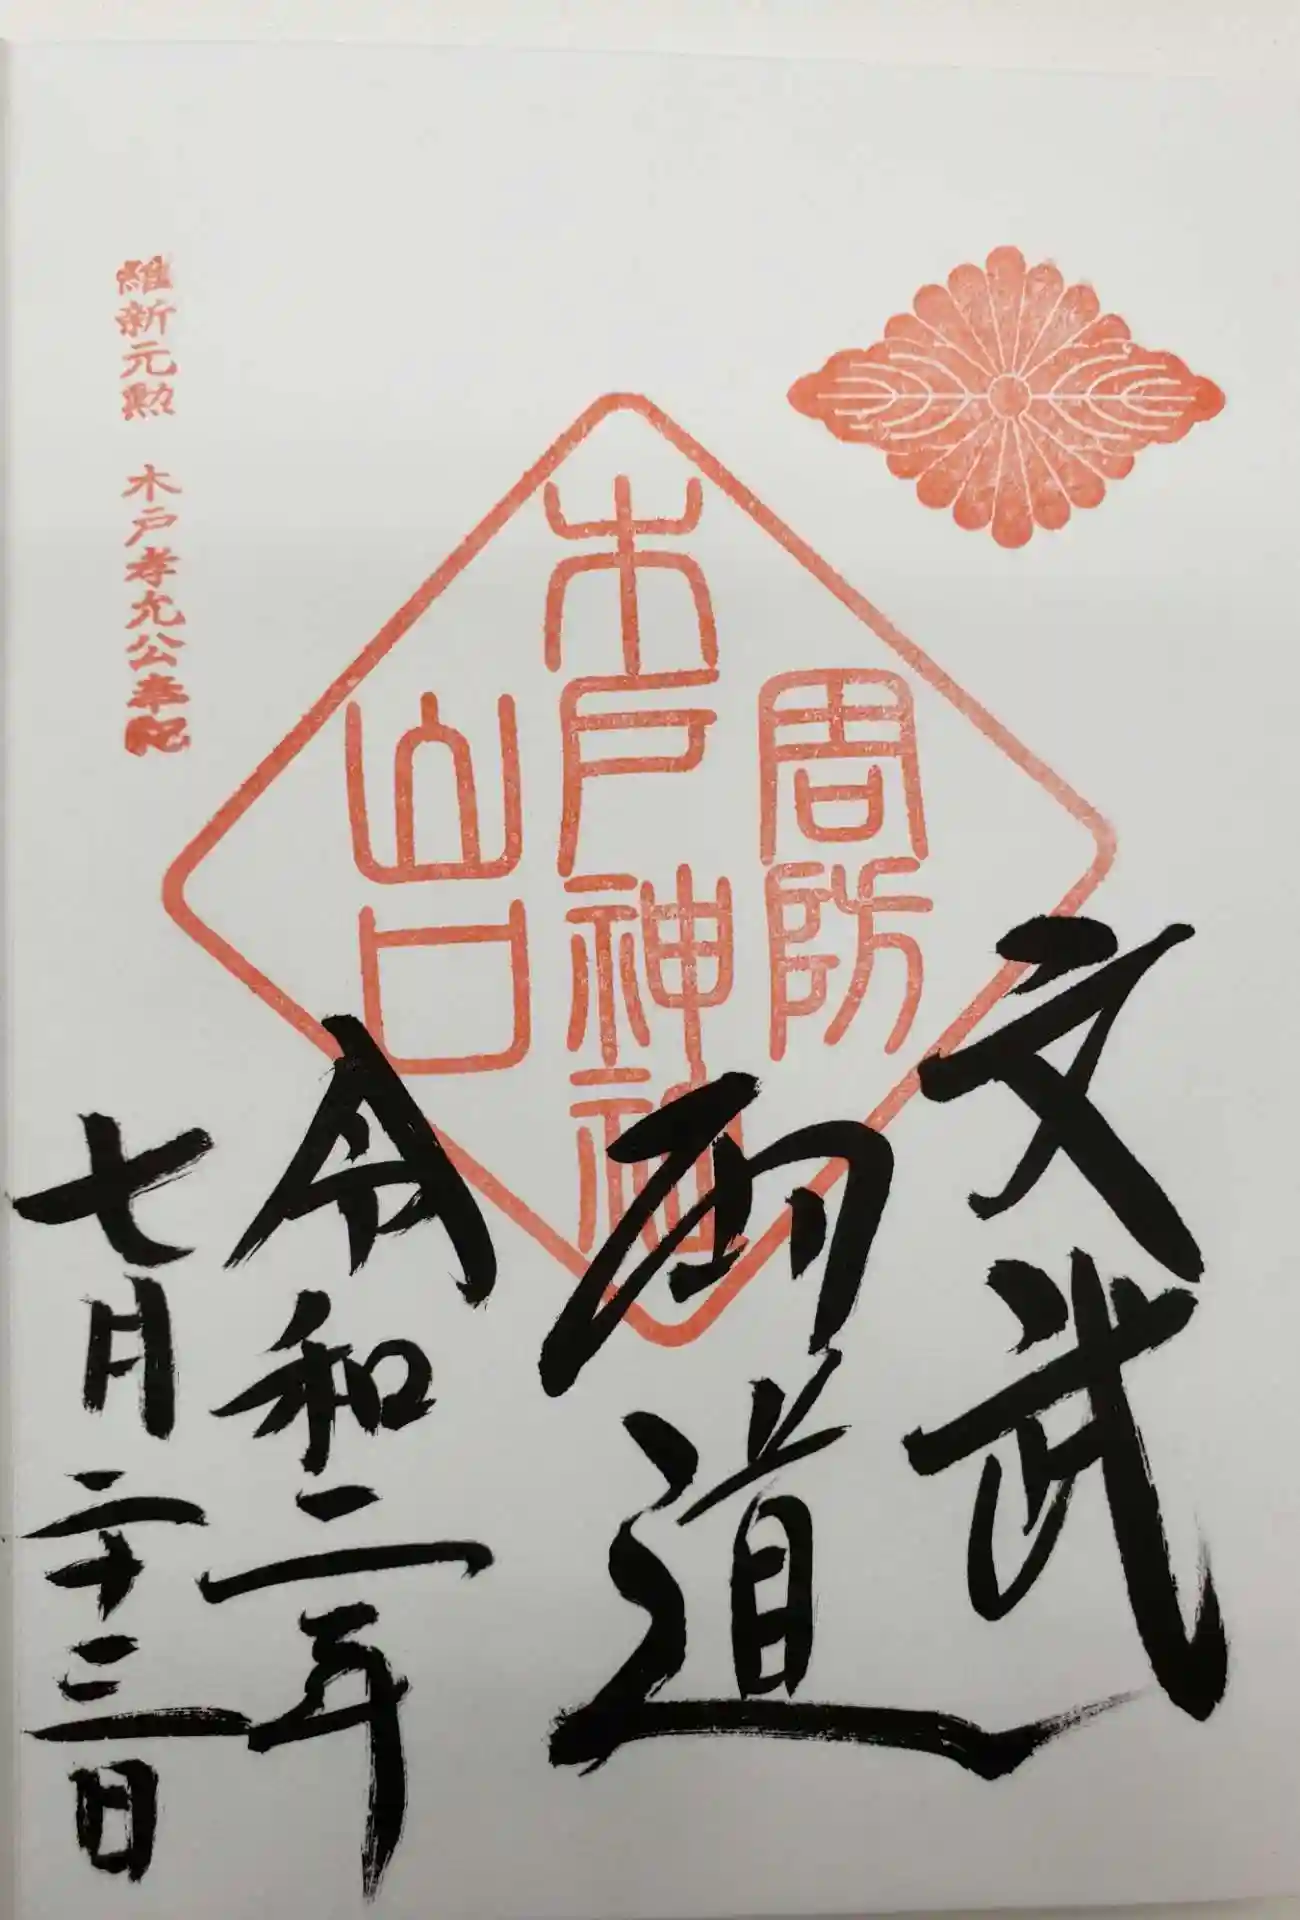 文武
両道
周防
木戸神社
山口
令和二年
七月二十三日
維新元勲 木戸孝允公奉祀